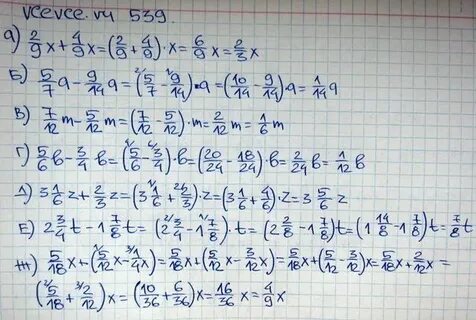 vcevce.ru 539.
а) 2/9 x + 4/9 x = (2/9 + 4/9) · x = 6/9 x = 2/3 x
Б) 5/7 a - 9/14 a = (²⁾5/7 - ¹⁾9/14) · a = (10/14 - 9/14) a = 1/14 a
В) 7/12 m - 5/12 m = (7/12 - 5/12) · m = 2/12 m = 1/6 m
Г) 5/6 в - 3/4 в = (⁴⁾5/6 - ⁶⁾3/4) · в = (20/24 - 18/24) · в = 2/24 в = 1/12 в
Д) 3 1/6 z + 2/3 z = (3 ¹⁾1/6 + ²⁾2/3) · z = (3 1/6 + 4/6) · z = 3 5/6 z
Е) 2 3/4 t - 1 7/8 t = (2 ²⁾3/4 - 1 ¹⁾7/8) · t = (2 2/8 - 1 7/8) t = (1 14/8 - 1 7/8) t = 7/8 t
Ж) 5/18 x + (¹⁾5/12 x - ³⁾1/4 x) = 5/18 x + (5/12 x - 3/12 x) = 5/18 x + (5/12 - 3/12) x = 5/18 x + 2/12 x =
(²⁾5/18 + ³⁾2/12) x = (10/36 + 6/36) x = 16/36 x = 4/9 x